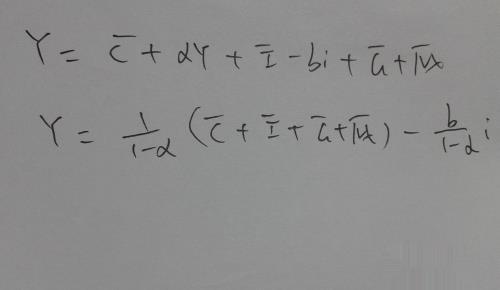 Y = C̅ + αY + I̅ - bi + G̅ + N̅X̅
Y = 1/(1-α) (C̅ + I̅ + G̅ + N̅X̅) - b/(1-α) i